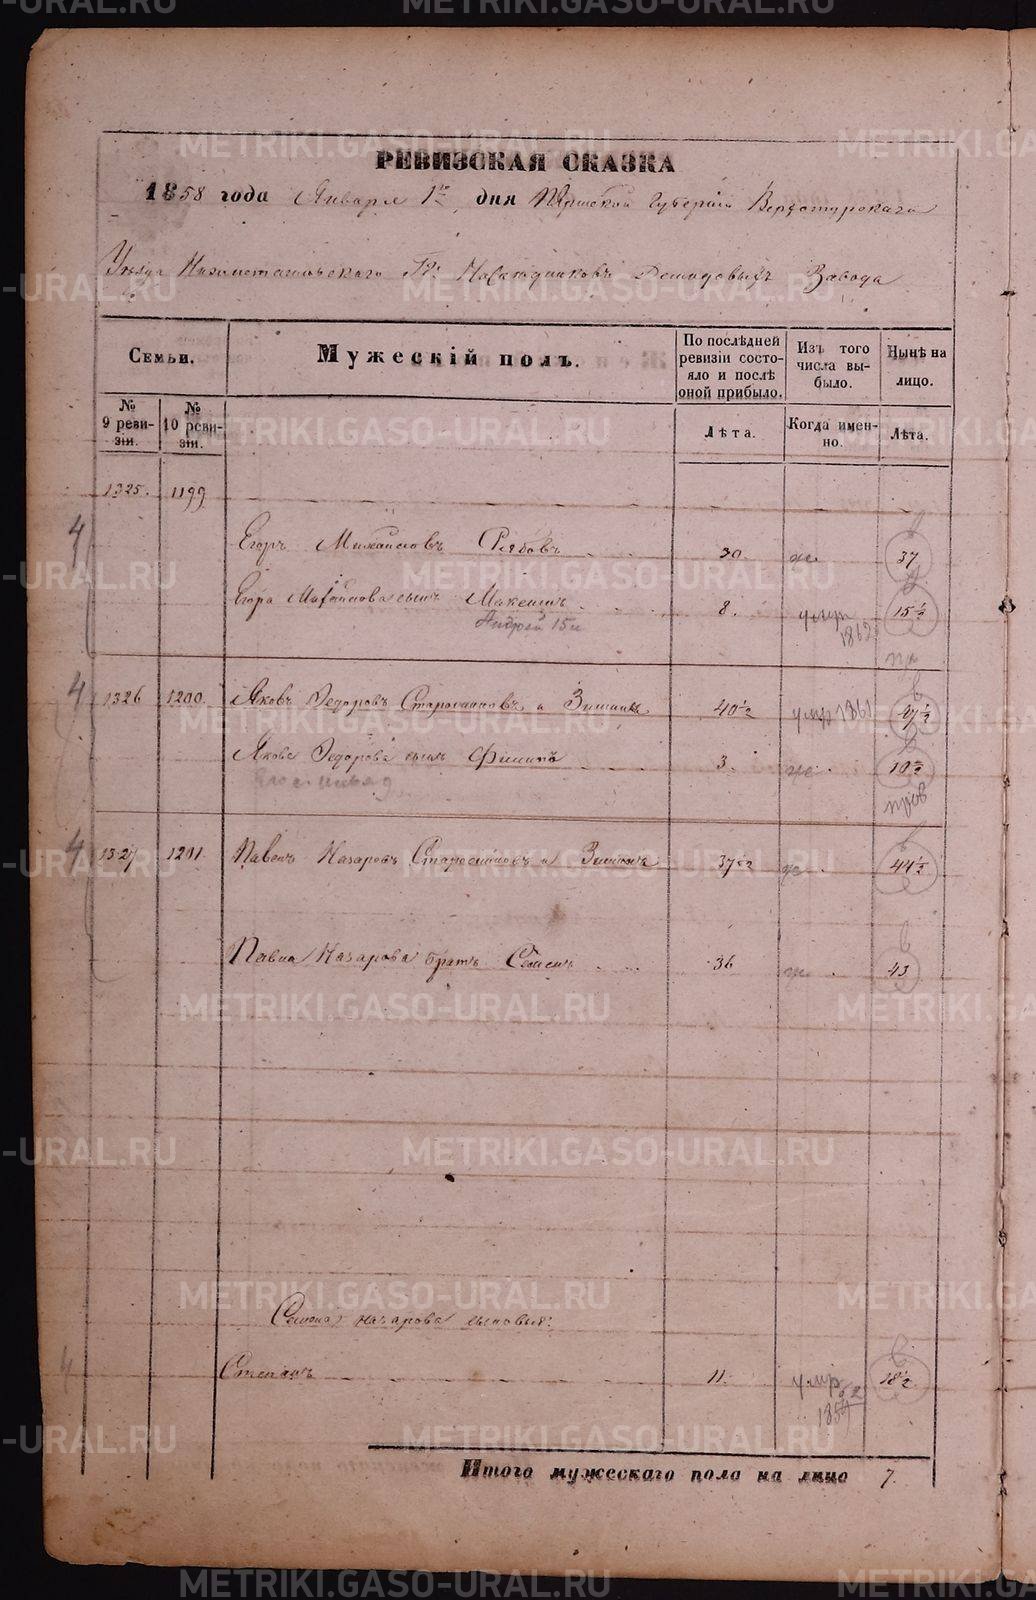 РЕВИЗСКАЯ СКАЗКА
1858 года Января 1го дня Пермской Губерніи Верхотурскаго
Уѣзда Нижнетагильскаго Гг. Наслѣдниковъ Демидовыхъ Завода
Семьи.
Мужескій полъ.
По послѣдней ревизіи состояло и послѣ оной прибыло.
Изъ того числа выбыло.
Нынѣ на лицо.
№ 9 ревизіи.
№ 10 ревизіи.
Лѣта.
Когда именно.
Лѣта.
1325. 1199
4 Егоръ Михайловъ Рябовъ 30 37
Егора Михайлова сынъ Максимъ 8. умер 1862 15½
Андрей 15 л
4 1326 1200. Яковъ Ѳедоровъ Старосинновъ и Зиминъ 40½ умер 1861 47½
Якова Ѳедорова сынъ Филипъ 3. 10½
4 1327 1201 Павелъ Назаровъ Старосинновъ и Зиминъ 37½ 44½
Павла Назарова братъ Семенъ 36 43
Семена Назарова сыновья:
4 Степанъ 11. умер 18½
Итого мужескаго пола на лицо 7.
METRIKI.GASO-URAL.RU